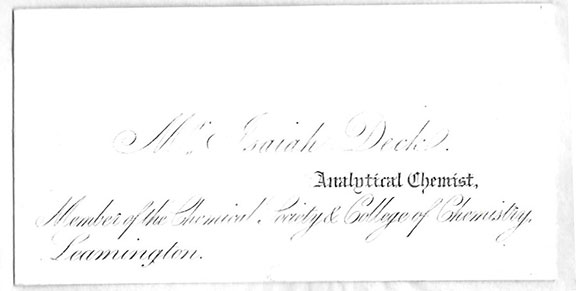 Mr. Isaiah Deck.
Analytical Chemist,
Member of the Chemical Society & College of Chemistry,
Leamington.